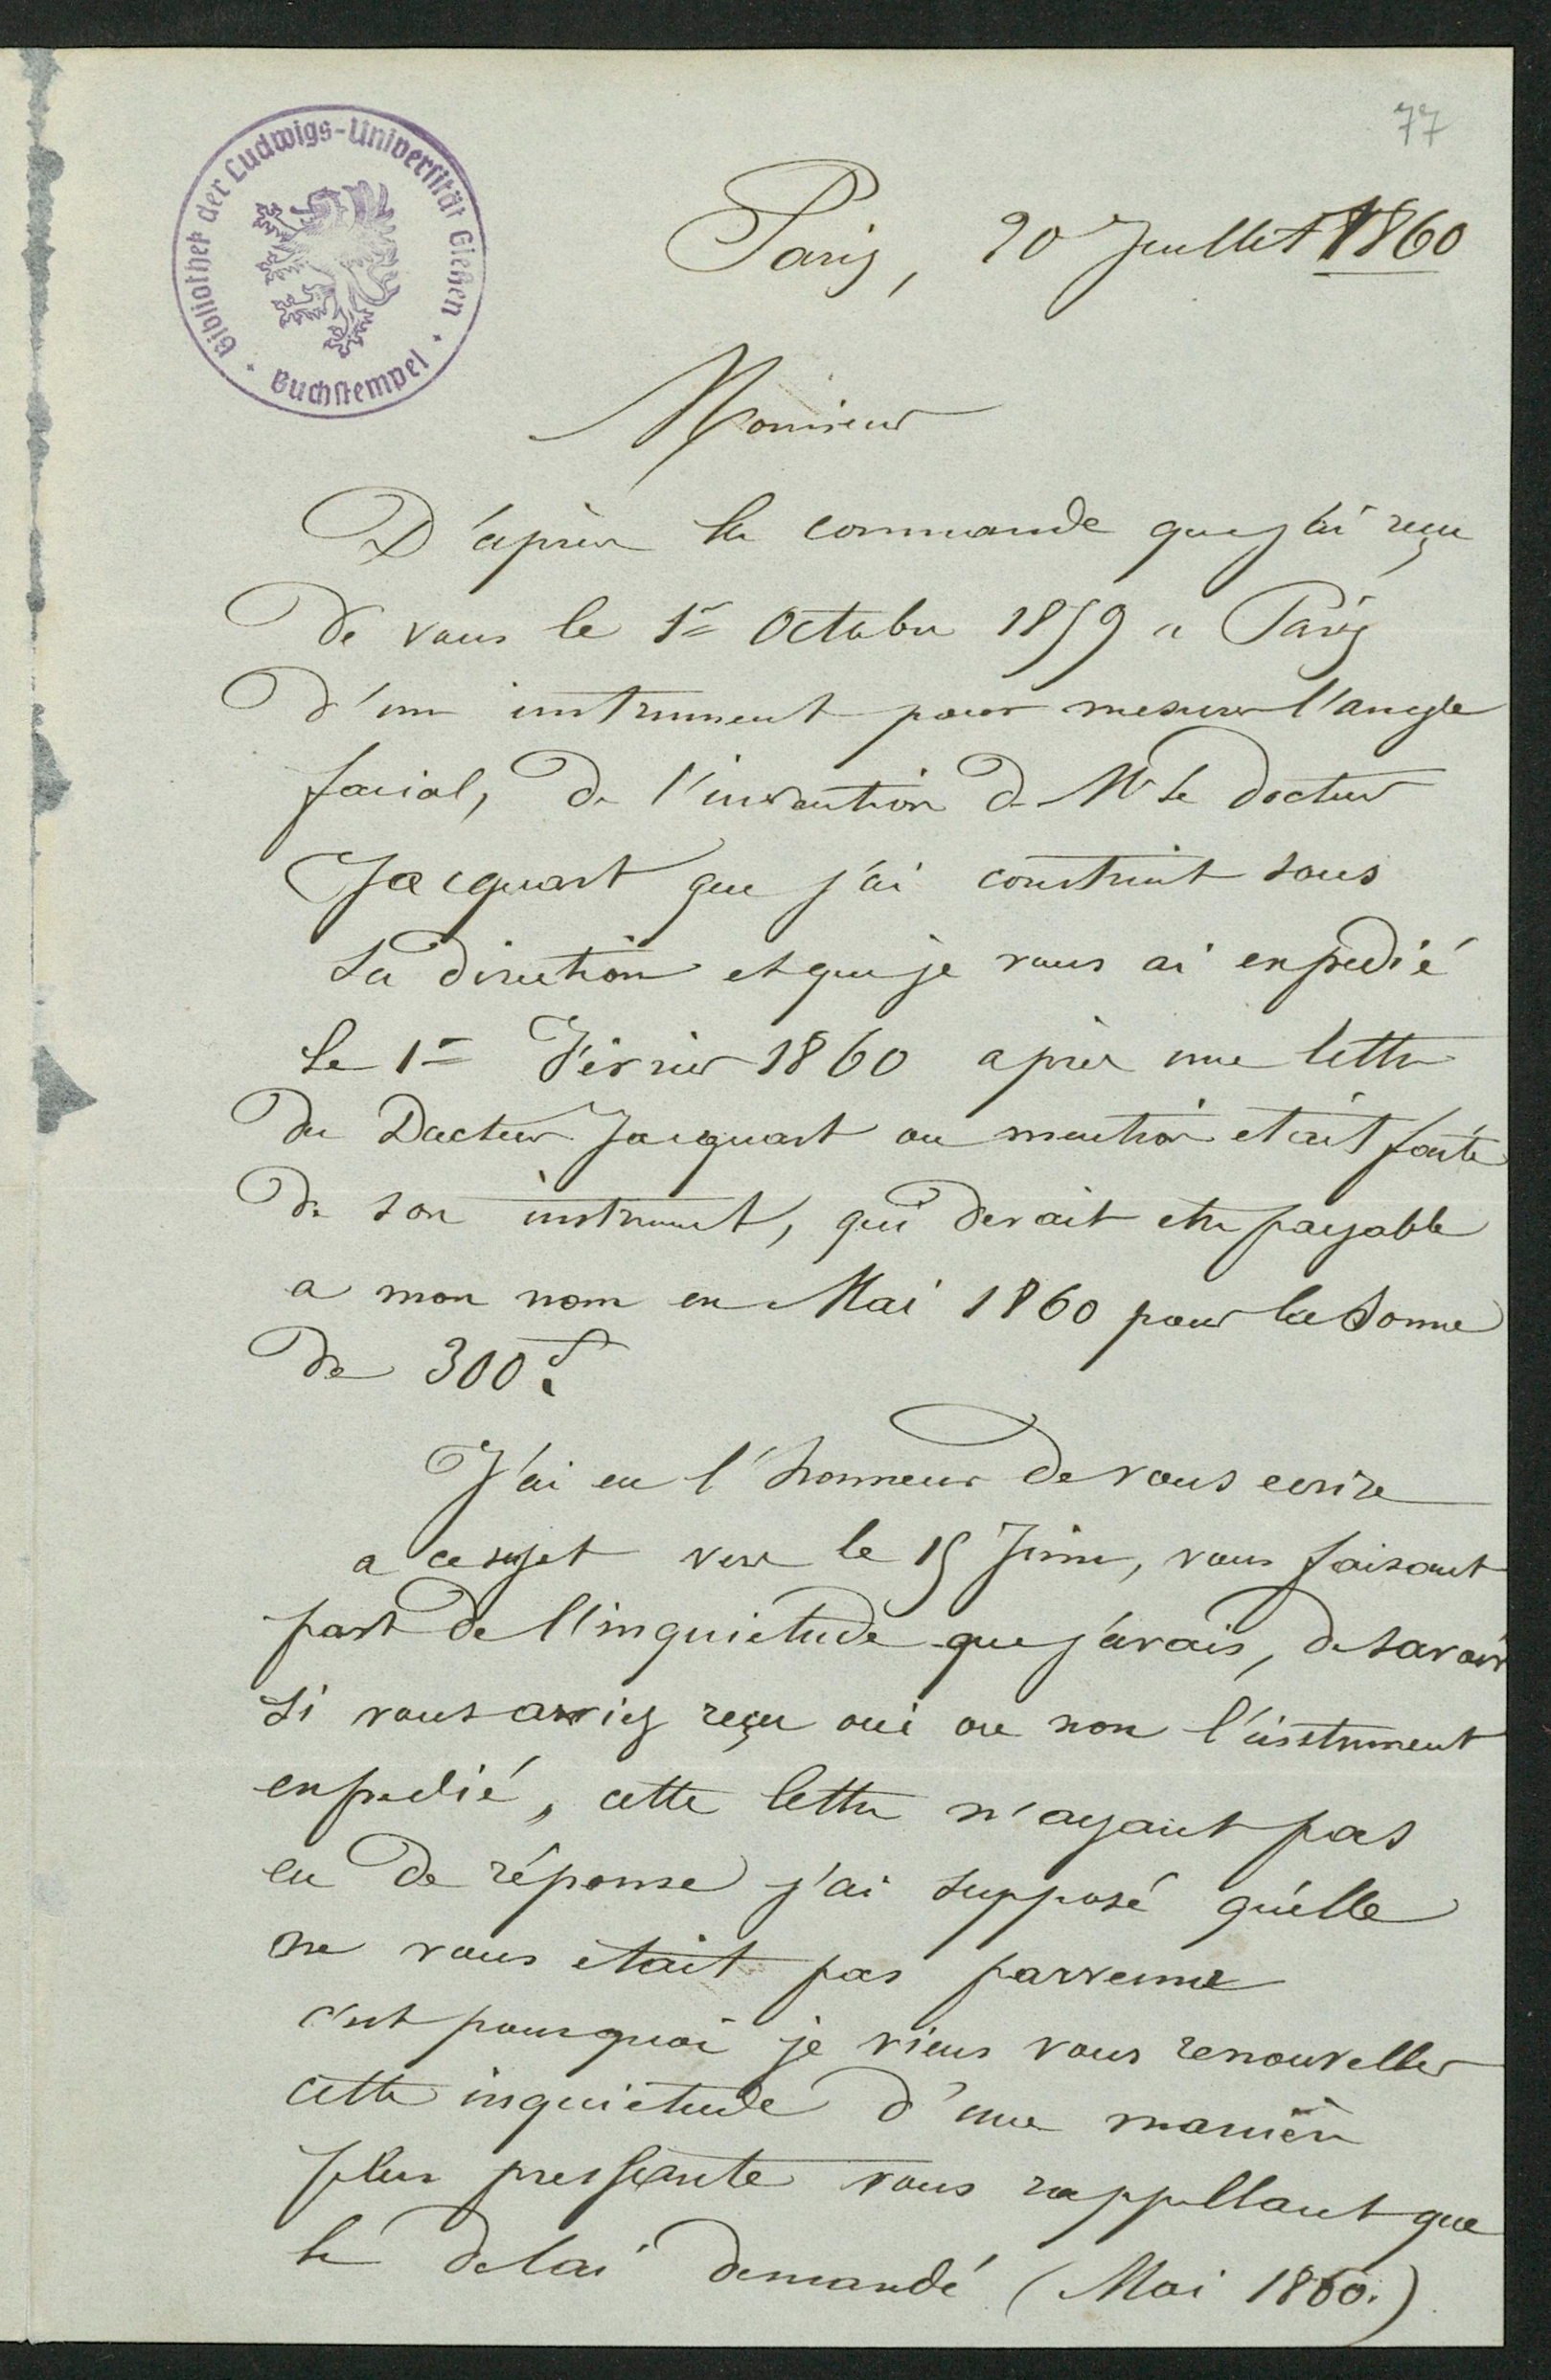 77
Bibliothek der Ludwigs-Universität Gießen
Buchstempel
Paris, 20 Juillet 1860
Monsieur
D'après la commande que j'ai reçu
de vous le 1er Octobre 1859 a Paris
d'un instrument pour mesurer l'angle
facial, de l'invention de Mr le docteur
Jacquart que j'ai construit sous
sa direction et que je vous ai expedié
le 1er Février 1860 après une lettre
du Docteur Jacquart ou mention etait faite
de son instrument, qui devait etre payable
a mon nom en Mai 1860 pour la somme
de 300f.
J'ai eu l'honneur de vous ecrire
a ce sujet vers le 15 Juin, vous faisant
part de l'inquietude que j'avais, de savoir
si vous aviez reçu oui ou non l'instrument
expedié, cette lettre n'ayant pas
eu de réponse j'ai supposé qu'elle
ne vous etait pas parvenue
c'est pourquoi je viens vous renouveller
cette inquietude d'une manière
plus pressante vous rappellant que
le delai demandé (Mai 1860.)